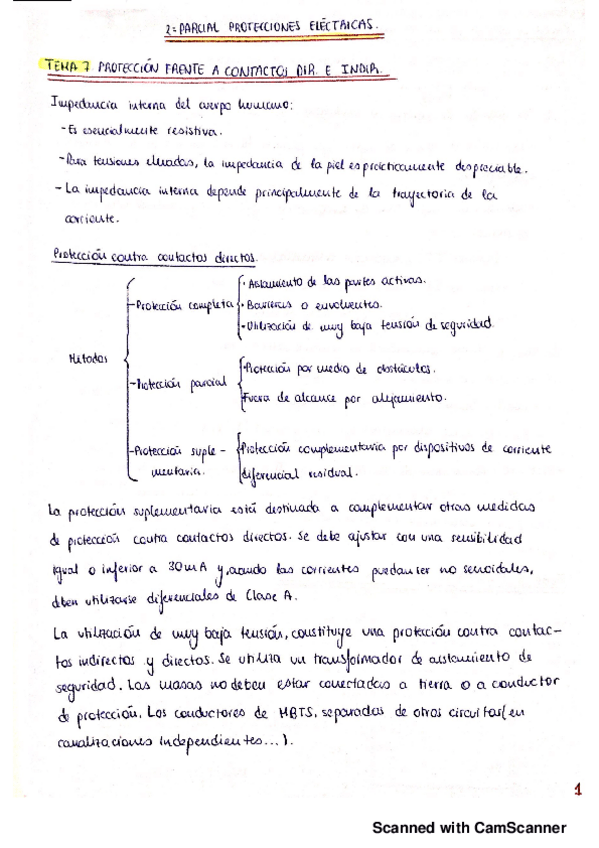 2º PARCIAL PROTECCIONES ELÉCTRICAS.
TEMA 7. PROTECCIÓN FRENTE A CONTACTOS DIR. E INDIR.
Impedancia interna del cuerpo humano:
- Es esencialmente resistiva.
- Para tensiones elevadas, la impedancia de la piel es prácticamente despreciable.
- La impedancia interna depende principalmente de la trayectoria de la
corriente.
Protección contra contactos directos.
Métodos
- Protección completa
· Aislamiento de las partes activas.
· Barreras o envolventes.
· Utilización de muy baja tensión de seguridad.
- Protección parcial
Protección por medio de obstáculos.
Fuera de alcance por alejamiento.
- Protección suple-
mentaria.
Protección complementaria por dispositivos de corriente
diferencial residual.
La protección suplementaria está destinada a complementar otras medidas
de protección contra contactos directos. Se debe ajustar con una sensibilidad
igual o inferior a 30mA y, cuando las corrientes puedan ser no senoidales,
deben utilizarse diferenciales de Clase A.
La utilización de muy baja tensión, constituye una protección contra contac-
tos indirectos y directos. Se utiliza un transformador de aislamiento de
seguridad. Las masas no deben estar conectadas a tierra o a conductor
de protección. Los conductores de MBTS, separados de otros circuitos (en
canalizaciones independientes...).
1
Scanned with CamScanner